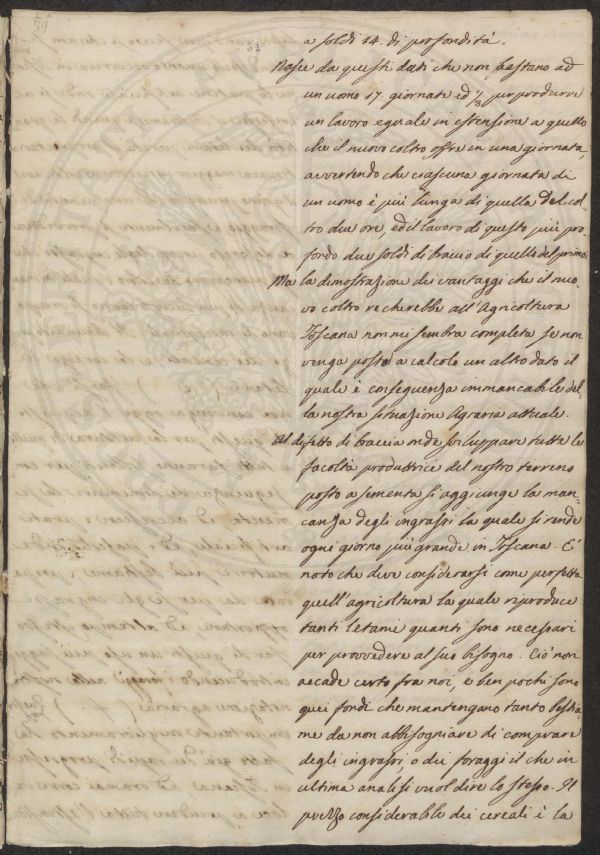 a soldi 14. di profondità.
Nasce da questi dati che non bastano ad
un uomo 17. giornate ed 1/3 per produrre
un lavoro eguale in estensione a quello
che il nuovo coltro offre in una giornata,
avvertendo che ciascuna giornata di
un uomo è più lunga di quella del col-
tro due ore, ed il lavoro di questo più pro-
fondo due soldi di braccio di quello del primo.
Ma la dimostrazione dei vantaggi che il nuo-
vo coltro recherebbe all'Agricoltura
Toscana non mi sembra completa, se non
venga posto a calcolo un altro dato il
quale è conseguenza immancabile del-
la nostra situazione Agraria attuale.
Al difetto di braccia onde sviluppare tutte le
facoltà produttrici del nostro terreno
posto a sementa si aggiunge la man-
canza degli ingrassi la quale si rende
ogni giorno più grande in Toscana. E'
noto che deve considerarsi come perfetta
quell'agricoltura la quale riproduce
tanti letami quanti sono necessari
per provvedere al suo bisogno. Ciò non
accade certo fra noi, e ben pochi sono
quei fondi che mantengano tanto bestia-
me da non abbisognare di comprare
degli ingrassi, o dei foraggi il che in
ultima analisi vuol dire lo stesso. Il
prezzo considerabile dei cereali è la